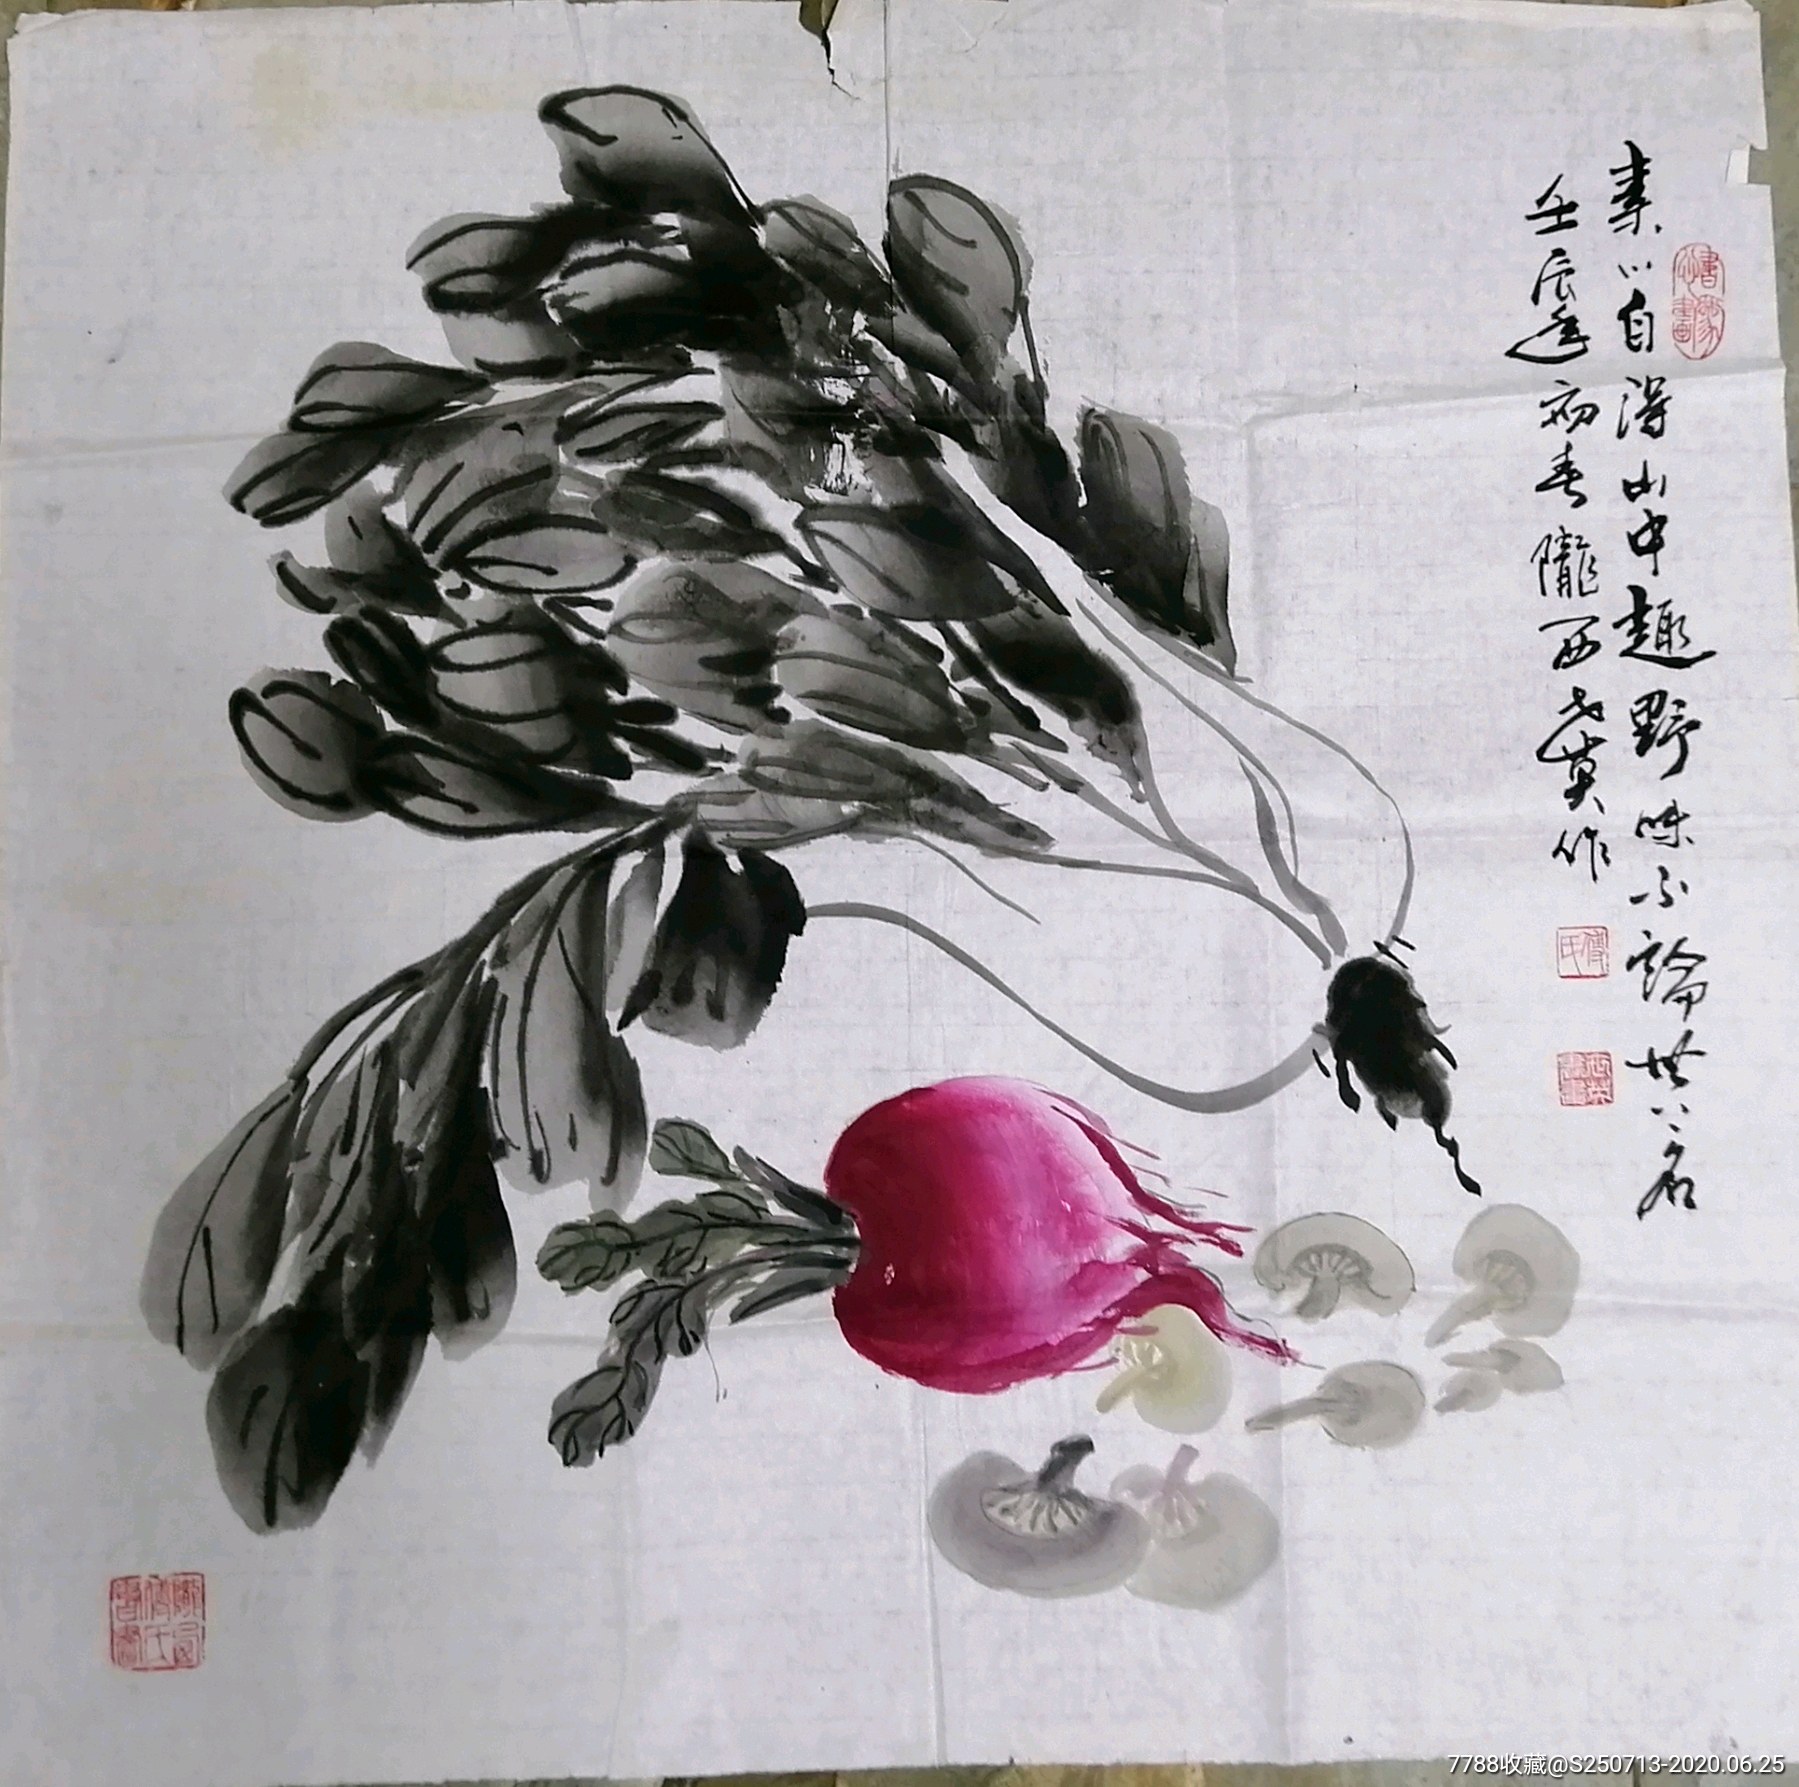 素心自得山中趣野味不論世人名
壬辰年初春隴西老莫作
傅氏
7788收藏@S250713-2020.06.25